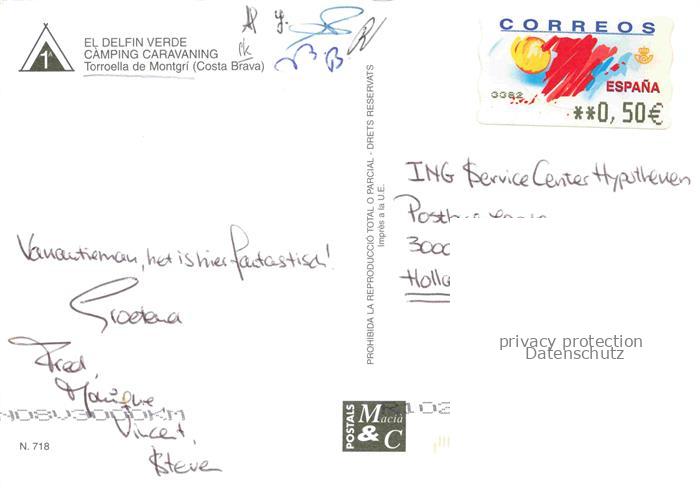 EL DELFIN VERDE
CÀMPING CARAVANING
Torroella de Montgrí (Costa Brava)
1ª
CORREOS
ESPAÑA
3382
**0,50€
PROHIBIDA LA REPRODUCCIÓ TOTAL O PARCIAL - DRETS RESERVATS
Imprès a la U.E.
ING Service Center Hypotheken
3000
Holla
Vanautieman, het is hier fantastisch!
Groetena
Fred,
Monique,
Vincent,
Steven
privacy protection
Datenschutz
POSTALS
Macià
& C
N. 718